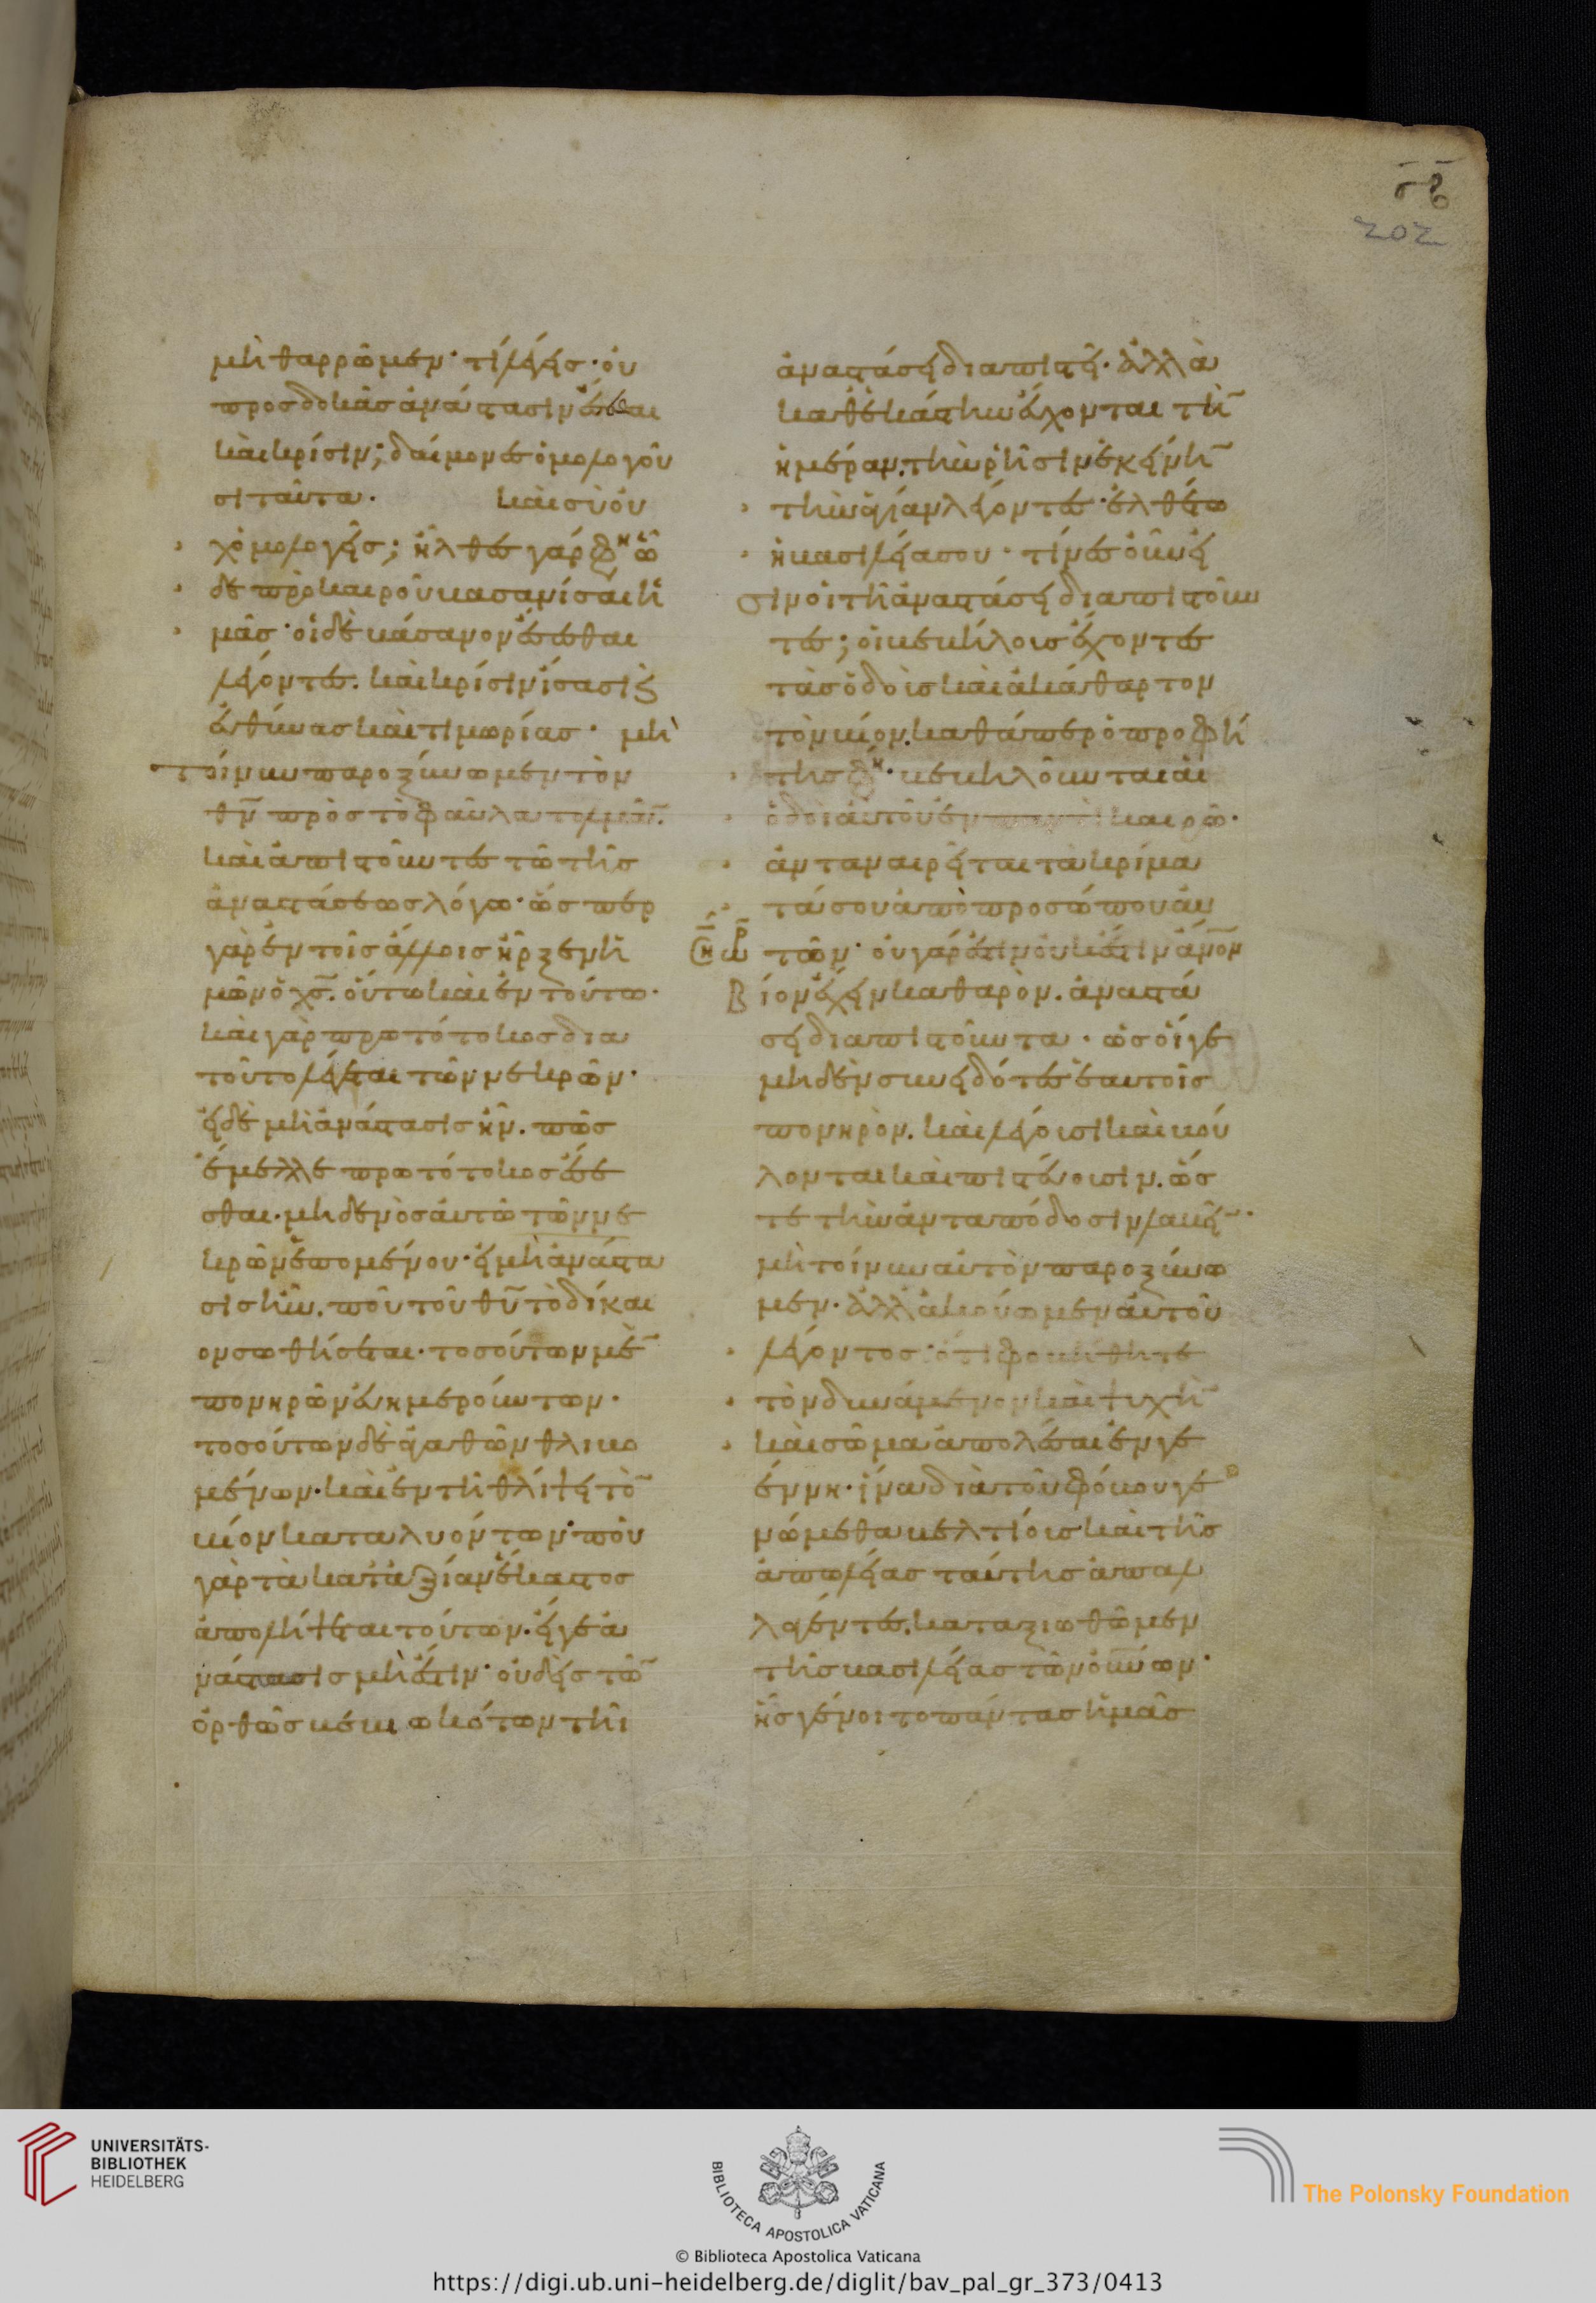 σβ
202
μὴ θαρρῶμεν· τί λέγεις· οὐ
προσδοκᾶς ἀνάστασιν ἔσεσθαι
καὶ κρίσιν; δαίμονες ὁμολογοῦ
σι ταῦτα. καὶ σὺ οὐ
χ ὁμολογεῖς; ἦλθες γάρ φη ὧ
δε πρὸ καιροῦ βασανίσαι ἡ
μᾶς· οἱ δὲ βάσανον ἔσεσθαι
λέγοντες. καὶ κρίσιν ἴσασι καὶ
εὐθύνας καὶ τιμωρίας· μὴ
τοίνυν παροξύνωμεν τὸν
θν̄ πρὸς τὸ φαῦλα τολμᾶν.
καὶ ἀπιστοῦντες τῶ τῆς
ἀναστάσεως λόγω· ὥσπερ
γὰρ ἐν τοῖς ἄλλοις ἦρξεν ἡ
μῶν ὁ χς̄. οὕτω καὶ ἐν τούτω·
καὶ γὰρ πρωτότοκος δια
τοῦτο λέγεται τῶν νεκρῶν·
εἰ δὲ μὴ ἀνάστασις ἦν. πῶς
ἔμελλε πρωτότοκος ἔσε
σθαι· μηδενὸς αὐτῶ τῶν νε
κρῶν ἑπομένου· εἰ μὴ ἀνάστα
σις ἦν. ποῦ τοῦ θῡ τὸ δίκαι
ον σωθήσεται· τοσούτων μὲν
πονηρῶν εὐημερούντων·
τοσούτων δὲ ἀγαθῶν θλιβο
μένων· καὶ ἐν τῆ θλίψει τὸν
βίον καταλυόντων· ποῦ
γὰρ τὰ κατ' ἀξίαν ἕκαστος
ἀπολήψεται τούτων· εἴγε ἀ
νάστασις μὴ ἔστιν· οὐδεὶς τῶν
ὀρθῶς βεβιωκότων τῆ
ἀναστάσει διαπιστεῖ· ἀλλὰ
καθ' ἑκάστην εὔχονται τὴν
ἡμέραν. τὴν ῥῆσιν ἐκείνην
τὴν ἁγίαν λέγοντες· ἐλθέτω
ἡ βασιλεία σου· τίνες οὖν εἰ
σιν οἱ τῆ ἀναστάσει διαπιστοῦν
τες; οἱ βεβήλους ἔχοντες
τὰς ὁδοὺς καὶ ἀκάθαρτον
τὸν βίον. καθάπερ ὁ προφή
της φη· βεβηλοῦνται αἱ
ὁδοὶ αὐτοῦ ἐν παντὶ καιρῶ·
ἀνταναιρεῖται τὰ κρίμα
τά σου ἀπὸ προσώπου αὐ
τῶν· οὐ γάρ ἐστιν οὐκ ἔστιν ἄνον
βίον ἔχειν καθαρὸν. ἀναστά
σει διαπιστοῦντα· ὡς οἵγε
μηδὲν συνειδότες ἑαυτοῖς
πονηρὸν. καὶ λέγουσι καὶ βού
λονται καὶ πιστεύουσιν. ὥσ
τε τὴν ἀνταπόδοσιν λαβεῖν·
μὴ τοίνυν αὐτὸν παροξύνω
μεν· ἀλλ' ἀκούωμεν αὐτοῦ
λέγοντος· ὅτι φοβήθητε
τὸν δυνάμενον καὶ ψυχὴν
καὶ σῶμα ἀπολέσαι ἐν γε
έννη· ἵνα διὰ τοῦ φόβου γε
νώμεθα βελτίους καὶ τῆς
ἀπωλείας ταύτης ἀπαλ
λαγέντες. καταξιωθῶμεν
τῆς βασιλείας τῶν οὐνῶν·
ἧς γένοιτο πάντας ἡμᾶς
UNIVERSITÄTS-
BIBLIOTHEK
HEIDELBERG
BIBLIOTECA APOSTOLICA VATICANA
The Polonsky Foundation
© Biblioteca Apostolica Vaticana
https://digi.ub.uni-heidelberg.de/diglit/bav_pal_gr_373/0413